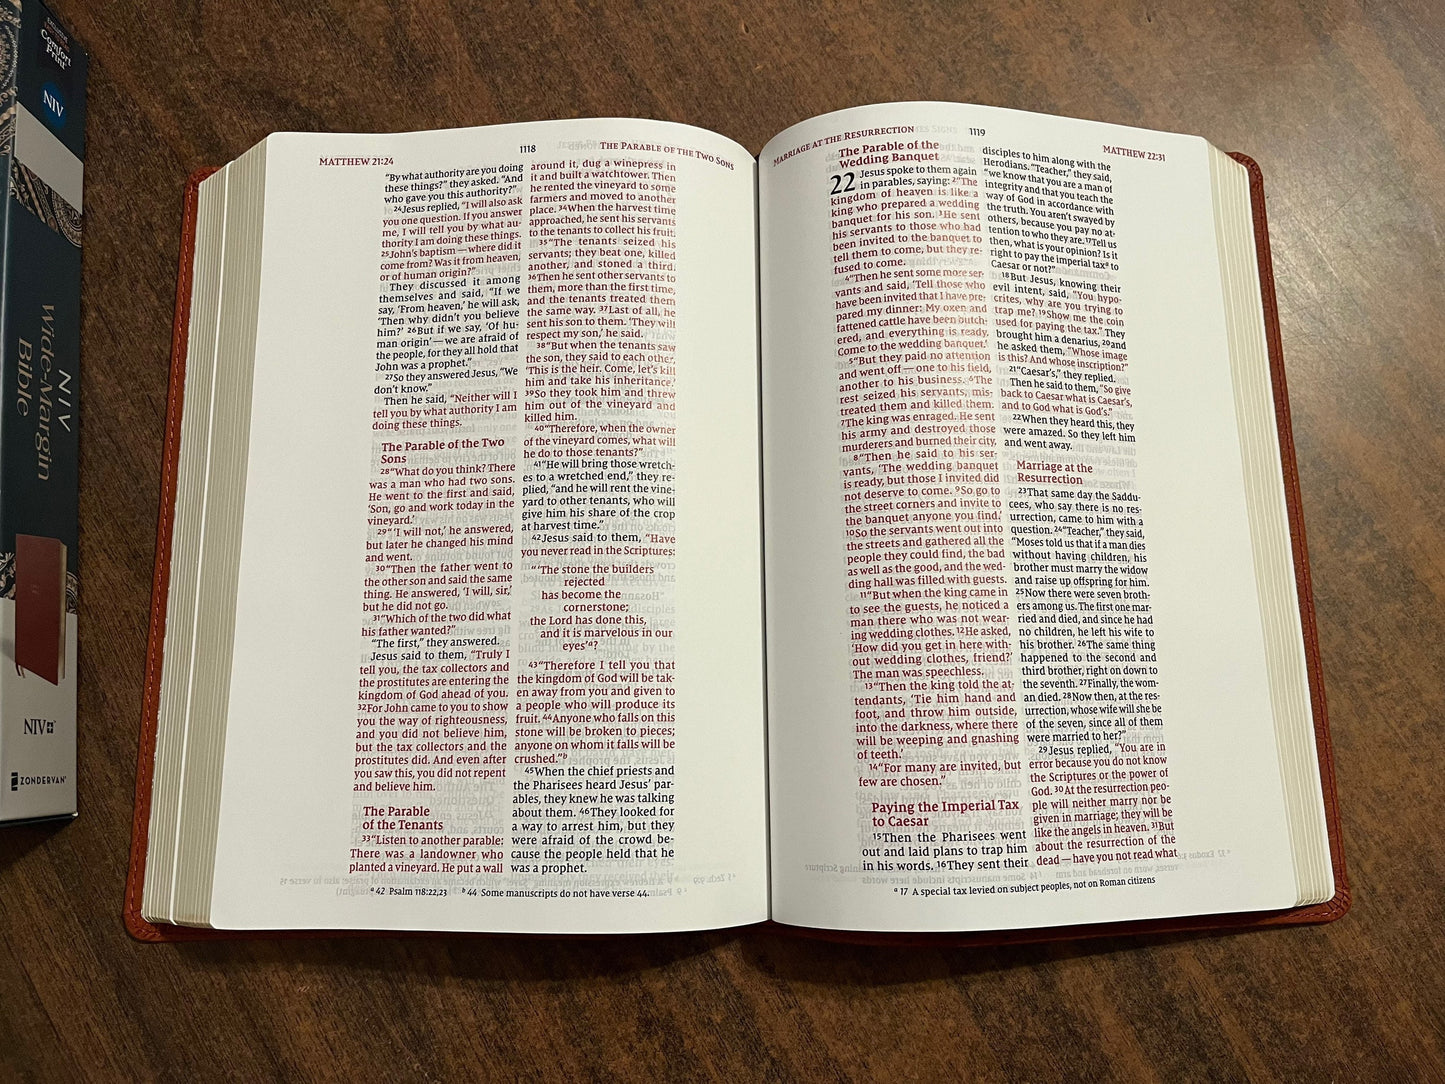 Comfort
Print
NIV
NIV
Wide-Margin
Bible
NIV
ZONDERVAN
MATTHEW 21:24
1118
THE PARABLE OF THE TWO SONS
“By what authority are you doing
these things?” they asked. “And
who gave you this authority?”
24Jesus replied, “I will also ask
you one question. If you answer
me, I will tell you by what au-
thority I am doing these things.
25John’s baptism — where did it
come from? Was it from heaven,
or of human origin?”
They discussed it among
themselves and said, “If we
say, ‘From heaven,’ he will ask,
‘Then why didn’t you believe
him?’ 26But if we say, ‘Of hu-
man origin’ — we are afraid of
the people, for they all hold that
John was a prophet.”
27So they answered Jesus, “We
don’t know.”
Then he said, “Neither will I
tell you by what authority I am
doing these things.
The Parable of the Two
Sons
28“What do you think? There
was a man who had two sons.
He went to the first and said,
‘Son, go and work today in the
vineyard.’
29“ ‘I will not,’ he answered,
but later he changed his mind
and went.
30“Then the father went to
the other son and said the same
thing. He answered, ‘I will, sir,’
but he did not go.
31“Which of the two did what
his father wanted?”
“The first,” they answered.
Jesus said to them, “Truly I
tell you, the tax collectors and
the prostitutes are entering the
kingdom of God ahead of you.
32For John came to you to show
you the way of righteousness,
and you did not believe him,
but the tax collectors and the
prostitutes did. And even after
you saw this, you did not repent
and believe him.
The Parable
of the Tenants
33“Listen to another parable:
There was a landowner who
planted a vineyard. He put a wall
around it, dug a winepress in
it and built a watchtower. Then
he rented the vineyard to some
farmers and moved to another
place. 34When the harvest time
approached, he sent his servants
to the tenants to collect his fruit.
35“The tenants seized his
servants; they beat one, killed
another, and stoned a third.
36Then he sent other servants to
them, more than the first time,
and the tenants treated them
the same way. 37Last of all, he
sent his son to them. ‘They will
respect my son,’ he said.
38“But when the tenants saw
the son, they said to each other,
‘This is the heir. Come, let’s kill
him and take his inheritance.’
39So they took him and threw
him out of the vineyard and
killed him.
40“Therefore, when the owner
of the vineyard comes, what will
he do to those tenants?”
41“He will bring those wretch-
es to a wretched end,” they re-
plied, “and he will rent the vine-
yard to other tenants, who will
give him his share of the crop
at harvest time.”
42Jesus said to them, “Have
you never read in the Scriptures:
“ ‘The stone the builders
rejected
has become the
cornerstone;
the Lord has done this,
and it is marvelous in our
eyes’a?
43“Therefore I tell you that
the kingdom of God will be tak-
en away from you and given to
a people who will produce its
fruit. 44Anyone who falls on this
stone will be broken to pieces;
anyone on whom it falls will be
crushed.”b
45When the chief priests and
the Pharisees heard Jesus’ par-
ables, they knew he was talking
about them. 46They looked for
a way to arrest him, but they
were afraid of the crowd be-
cause the people held that he
was a prophet.
a 42 Psalm 118:22,23 b 44 Some manuscripts do not have verse 44.
MARRIAGE AT THE RESURRECTION
1119
MATTHEW 22:31
The Parable of the
Wedding Banquet
22 Jesus spoke to them again
in parables, saying: 2“The
kingdom of heaven is like a
king who prepared a wedding
banquet for his son. 3He sent
his servants to those who had
been invited to the banquet to
tell them to come, but they re-
fused to come.
4“Then he sent some more ser-
vants and said, ‘Tell those who
have been invited that I have pre-
pared my dinner: My oxen and
fattened cattle have been butch-
ered, and everything is ready.
Come to the wedding banquet.’
5“But they paid no attention
and went off — one to his field,
another to his business. 6The
rest seized his servants, mis-
treated them and killed them.
7The king was enraged. He sent
his army and destroyed those
murderers and burned their city.
8“Then he said to his ser-
vants, ‘The wedding banquet
is ready, but those I invited did
not deserve to come. 9So go to
the street corners and invite to
the banquet anyone you find.’
10So the servants went out into
the streets and gathered all the
people they could find, the bad
as well as the good, and the wed-
ding hall was filled with guests.
11“But when the king came in
to see the guests, he noticed a
man there who was not wear-
ing wedding clothes. 12He asked,
‘How did you get in here with-
out wedding clothes, friend?’
The man was speechless.
13“Then the king told the at-
tendants, ‘Tie him hand and
foot, and throw him outside,
into the darkness, where there
will be weeping and gnashing
of teeth.’
14“For many are invited, but
few are chosen.”
Paying the Imperial Tax
to Caesar
15Then the Pharisees went
out and laid plans to trap him
in his words. 16They sent their
disciples to him along with the
Herodians. “Teacher,” they said,
“we know that you are a man of
integrity and that you teach the
way of God in accordance with
the truth. You aren’t swayed by
others, because you pay no at-
tention to who they are. 17Tell us
then, what is your opinion? Is it
right to pay the imperial taxa to
Caesar or not?”
18But Jesus, knowing their
evil intent, said, “You hypo-
crites, why are you trying to
trap me? 19Show me the coin
used for paying the tax.” They
brought him a denarius, 20and
he asked them, “Whose image
is this? And whose inscription?”
21“Caesar’s,” they replied.
Then he said to them, “So give
back to Caesar what is Caesar’s,
and to God what is God’s.”
22When they heard this, they
were amazed. So they left him
and went away.
Marriage at the
Resurrection
23That same day the Saddu-
cees, who say there is no res-
urrection, came to him with a
question. 24“Teacher,” they said,
“Moses told us that if a man dies
without having children, his
brother must marry the widow
and raise up offspring for him.
25Now there were seven broth-
ers among us. The first one mar-
ried and died, and since he had
no children, he left his wife to
his brother. 26The same thing
happened to the second and
third brother, right on down to
the seventh. 27Finally, the wom-
an died. 28Now then, at the res-
urrection, whose wife will she be
of the seven, since all of them
were married to her?”
29Jesus replied, “You are in
error because you do not know
the Scriptures or the power of
God. 30At the resurrection peo-
ple will neither marry nor be
given in marriage; they will be
like the angels in heaven. 31But
about the resurrection of the
dead — have you not read what
a 17 A special tax levied on subject peoples, not on Roman citizens